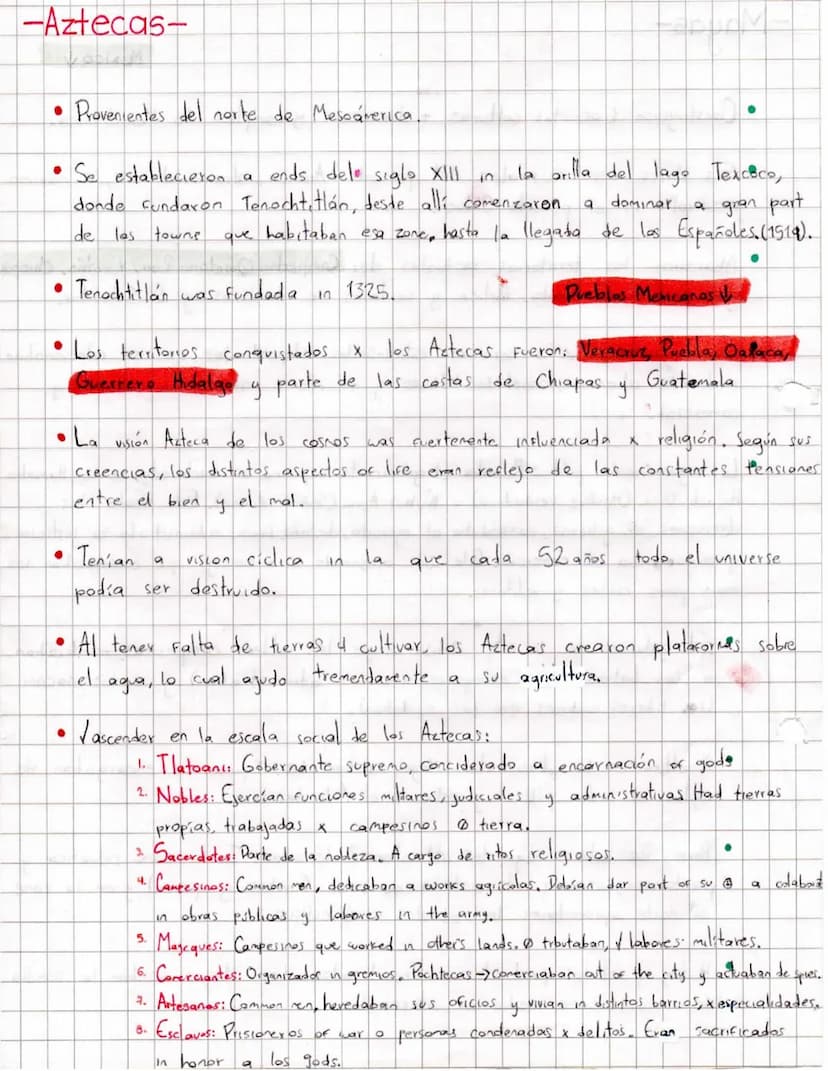 -Aztecas-
• Provenientes del norte de Mesoámerica.
• Se establecieron a ends del siglo XIII in la orilla del lago Texcoco,
donde fundaron Tenochtitlán, deste allí comenzaron a dominar a gran part
de los towns que habitaban esa zone, hasta la llegada de los Españoles.(1519).
• Tenochtitlán was fundada in 1325.
Pueblos Mexicanos ↓
• Los territorios conquistados x los Aztecas fueron: Veracruz, Puebla, Oaxaca,
Guerrero Hidalgo y parte de las costas de Chiapas y Guatemala
• La visión Azteca de los cosmos was fuertemente influenciada x religión. Según sus
creencias, los distintos aspectos of life eran reflejo de las constantes tensiones
entre el bien y el mal.
• Tenían a vision cíclica in la que cada 52 años todo el universe
podía ser destruido.
• Al tener falta de tierras 4 cultivar, los Aztecas crearon plataformas sobre
el agua, lo cual ayudo tremendamente a su agricultura.
• √ascender en la escala social de los Aztecas:
1. Tlatoani: Gobernante supremo, conciderado a encarnación of gods
2. Nobles: Ejercían funciones militares, judiciales y administrativas Had tierras
propias, trabajadas x campesinos Ø tierra.
3. Sacerdotes: Parte de la nobleza. A cargo de ritos religiosos.
4. Campesinos: Common men, dedicaban a works agrícolas. Debían dar part of su a colabort
in obras públicas y labores in the army.
5. Mayeques: Campesinos que worked in others lands. Ø tributaban, √ labores militares.
6. Comerciantes: Organizador in gremios. Pochtecas → comerciaban out of the city y actuaban de spies.
7. Artesanos: Common men, heredaban sus oficios y vivían in distintos barrios, x especialidades.
8. Esclavos: Prisioneros of war o personas condenadas x delitos. Eran sacrificados
in honor a los gods.